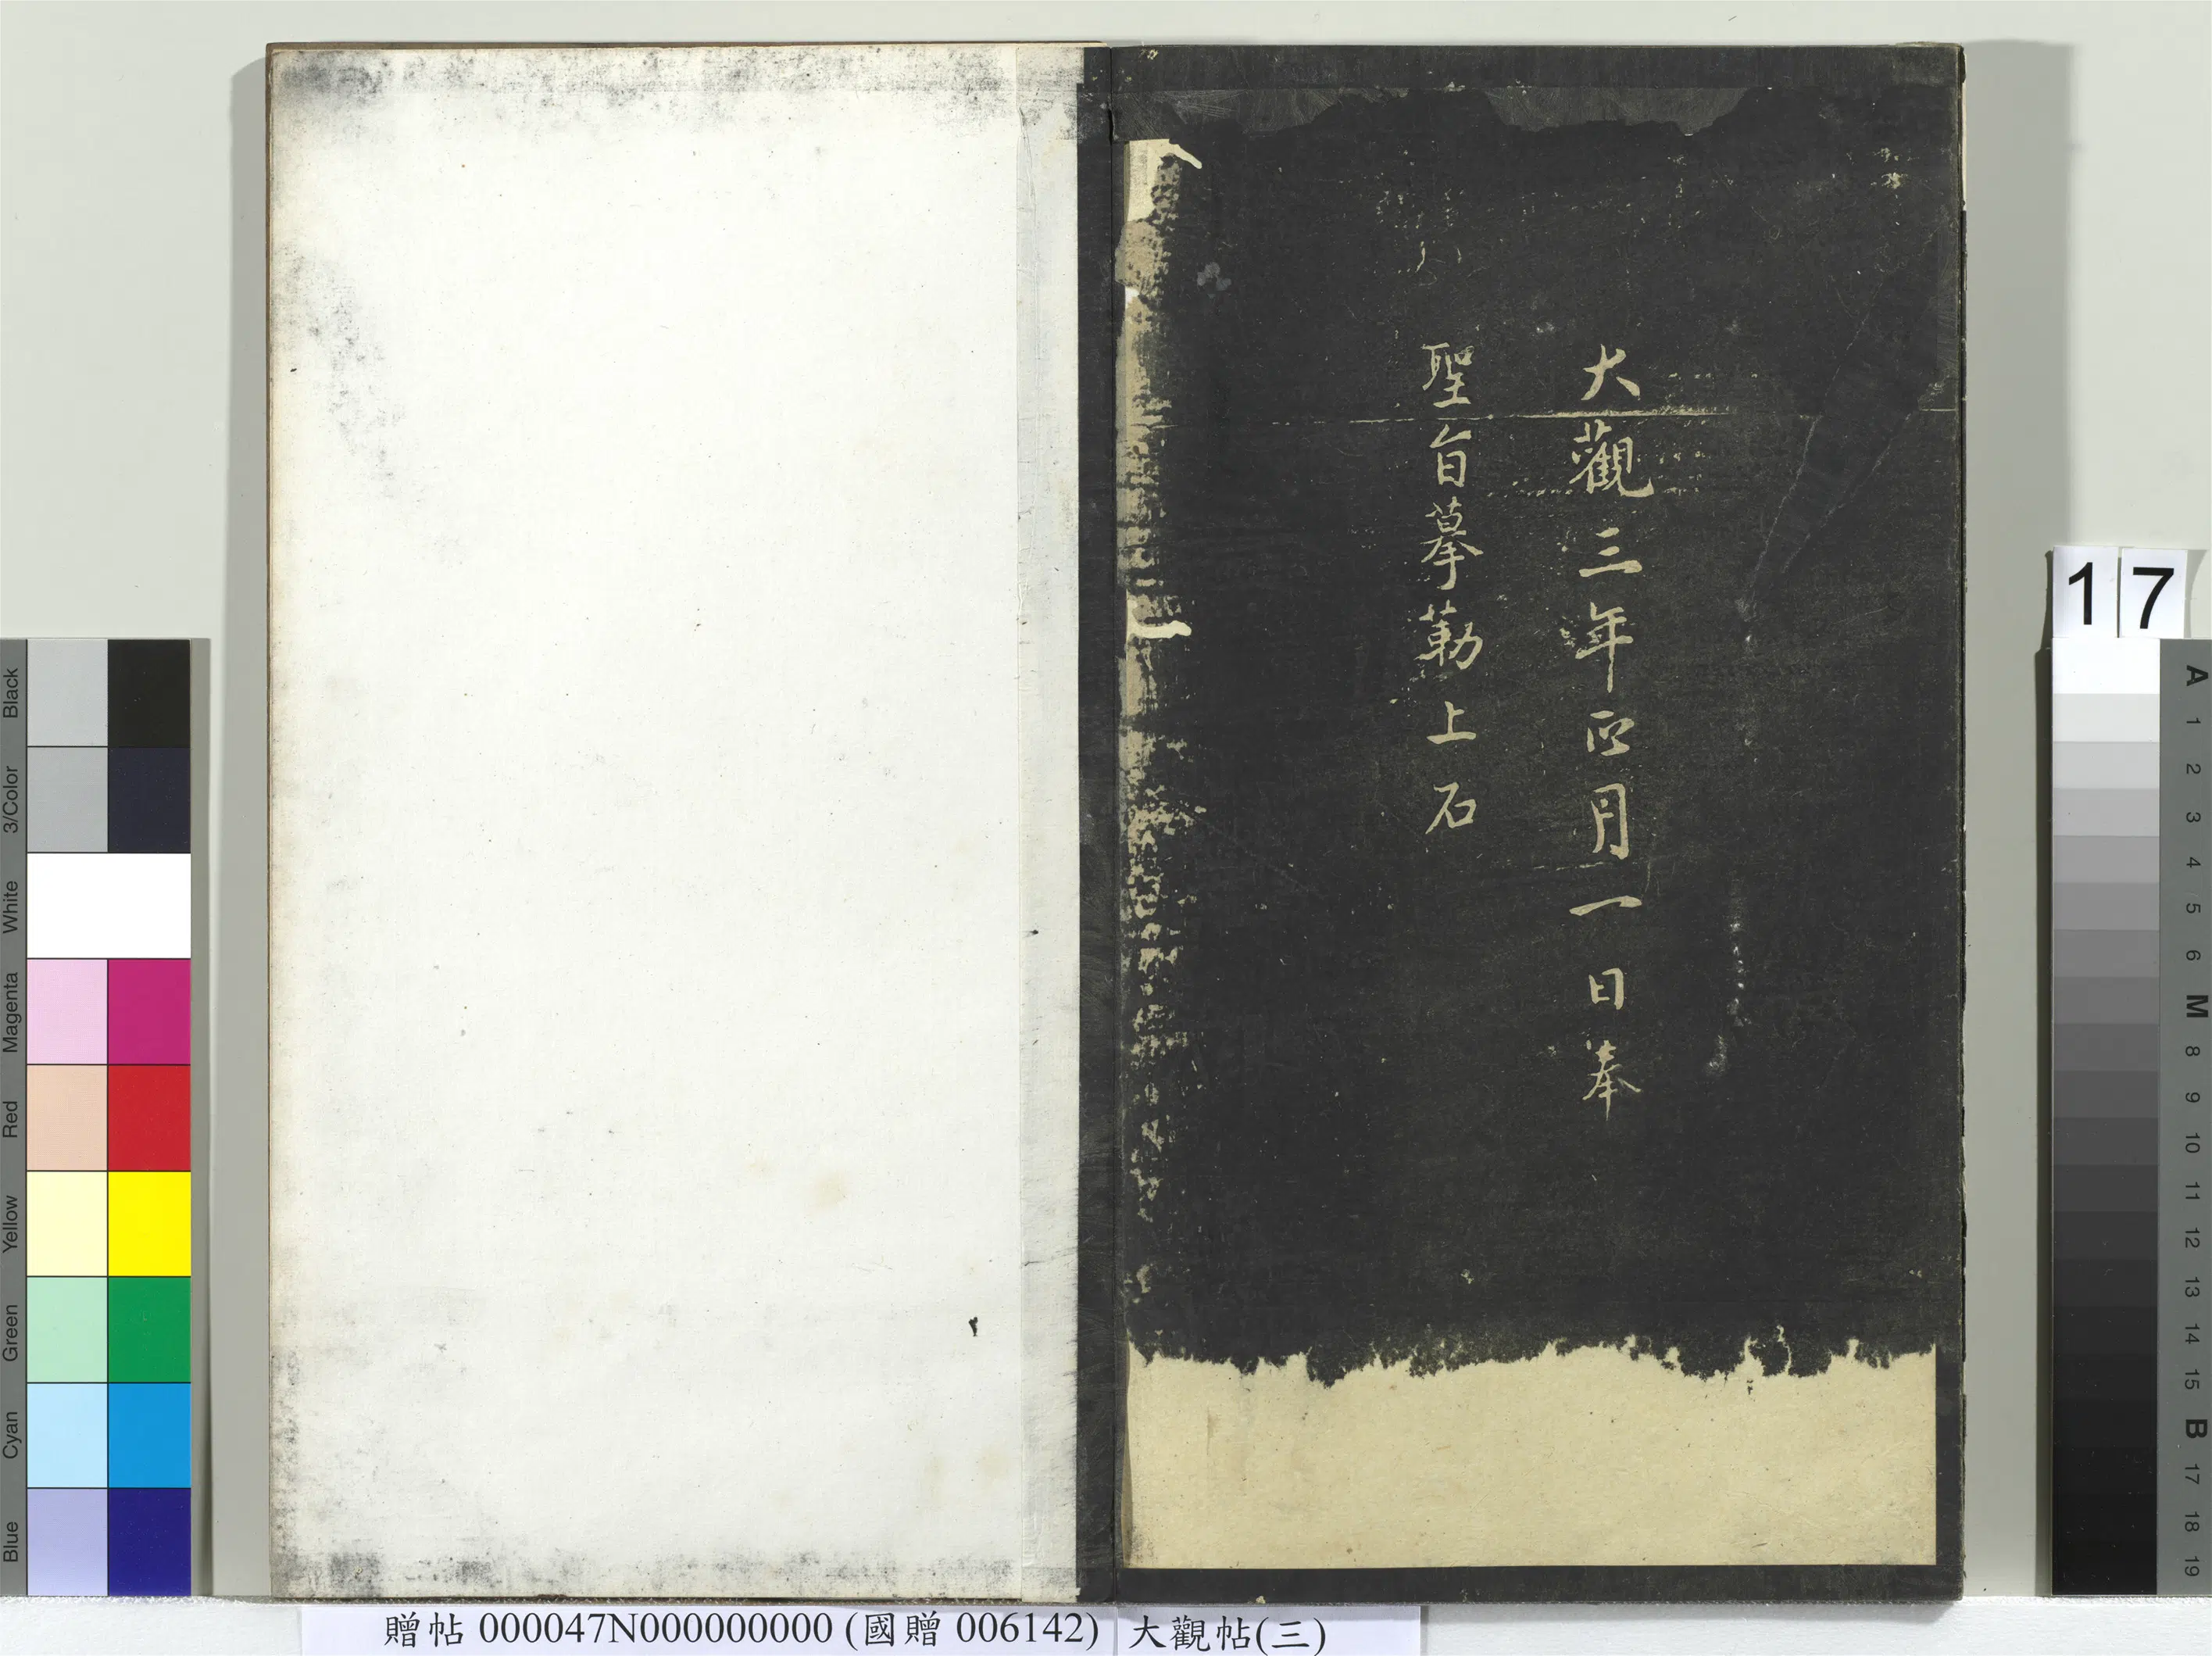 大觀三年正月一日奉
聖旨摹勒上石
贈帖 000047N000000000 (國贈 006142) 大觀帖(三)
17
Blue Cyan Green Yellow Red Magenta White 3/Color Black
A 1 2 3 4 5 6 M 8 9 10 11 12 13 14 15 B 17 18 19